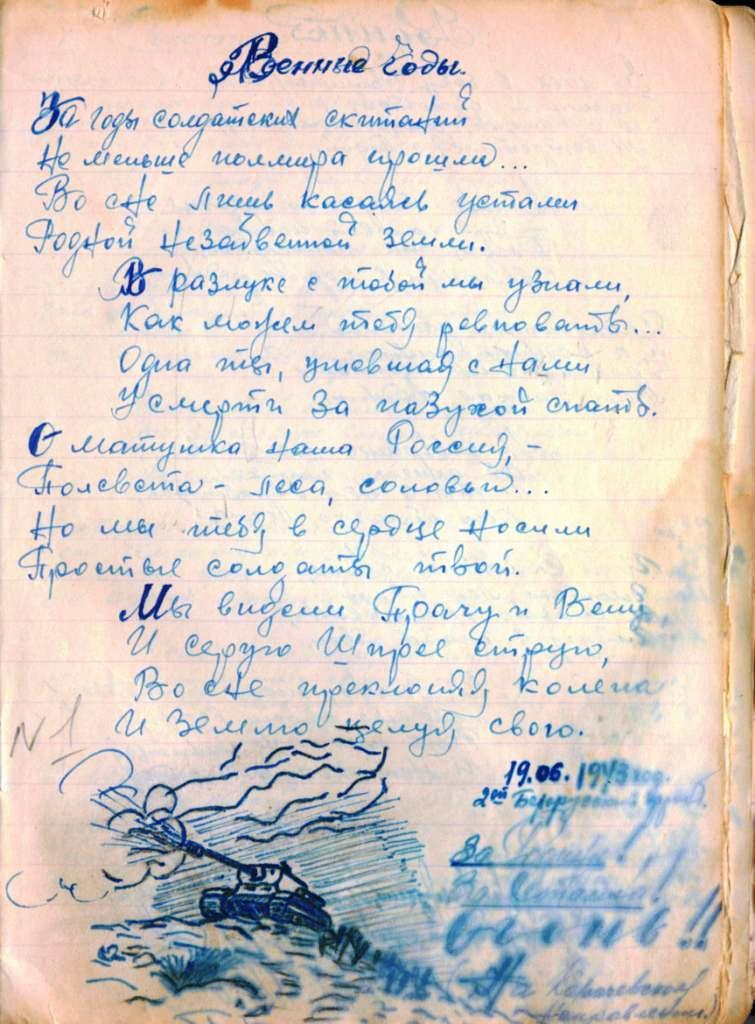 Военные Годы.
За годы солдатских скитаний
Не меньше полмира прошли...
Во сне лишь касаясь устами
Родной незабвенной земли.
В разлуке с тобой мы узнали,
Как можем тебя ревновать...
Одна ты, умевшая с нами
У смерти за пазухой спать.
О матушка наша Россия, -
Полсвета - леса, соловьи...
Но мы тебя в сердце носили
Простые солдаты твои.
Мы видели Прагу и Вену
И серую Шпрее струю,
Во сне преклоняя колена
И Землю целуя свою.
N 1
19.06. 1943 год.
2ой Белорусский фронт.
За
За Сталина!
Огонь!!
На
направлении.